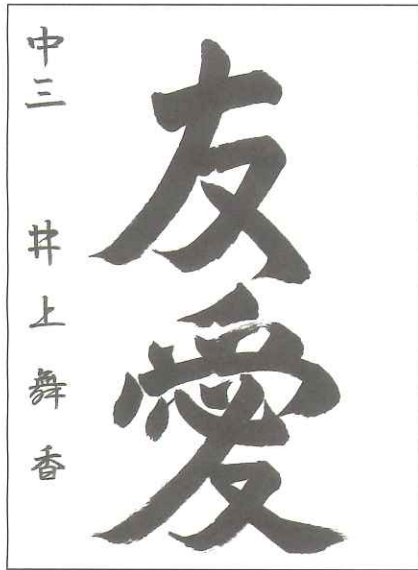 友愛
中三 井上舞香